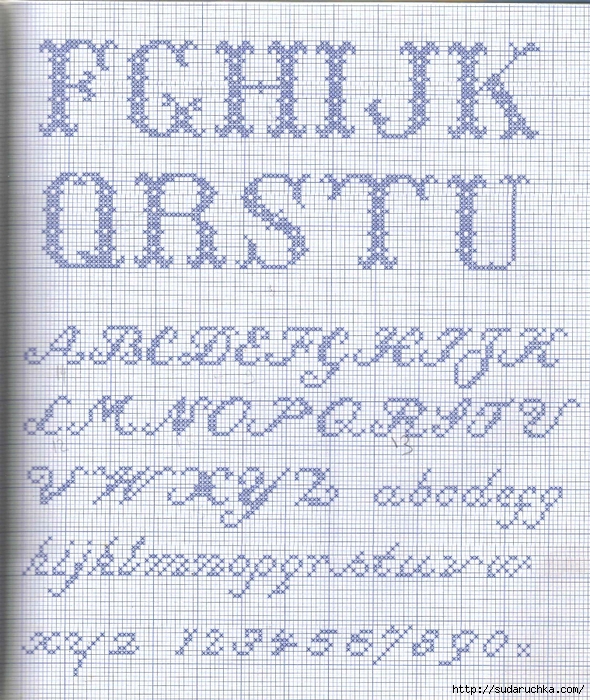 FGHIJK
QRSTU
ABCDEFGHIJK
LMNOPQRSTU
13
VWXYZ abcdefg
hijklmnopqrstuvw
xyz 1234567890
http://sudaruchka.com/